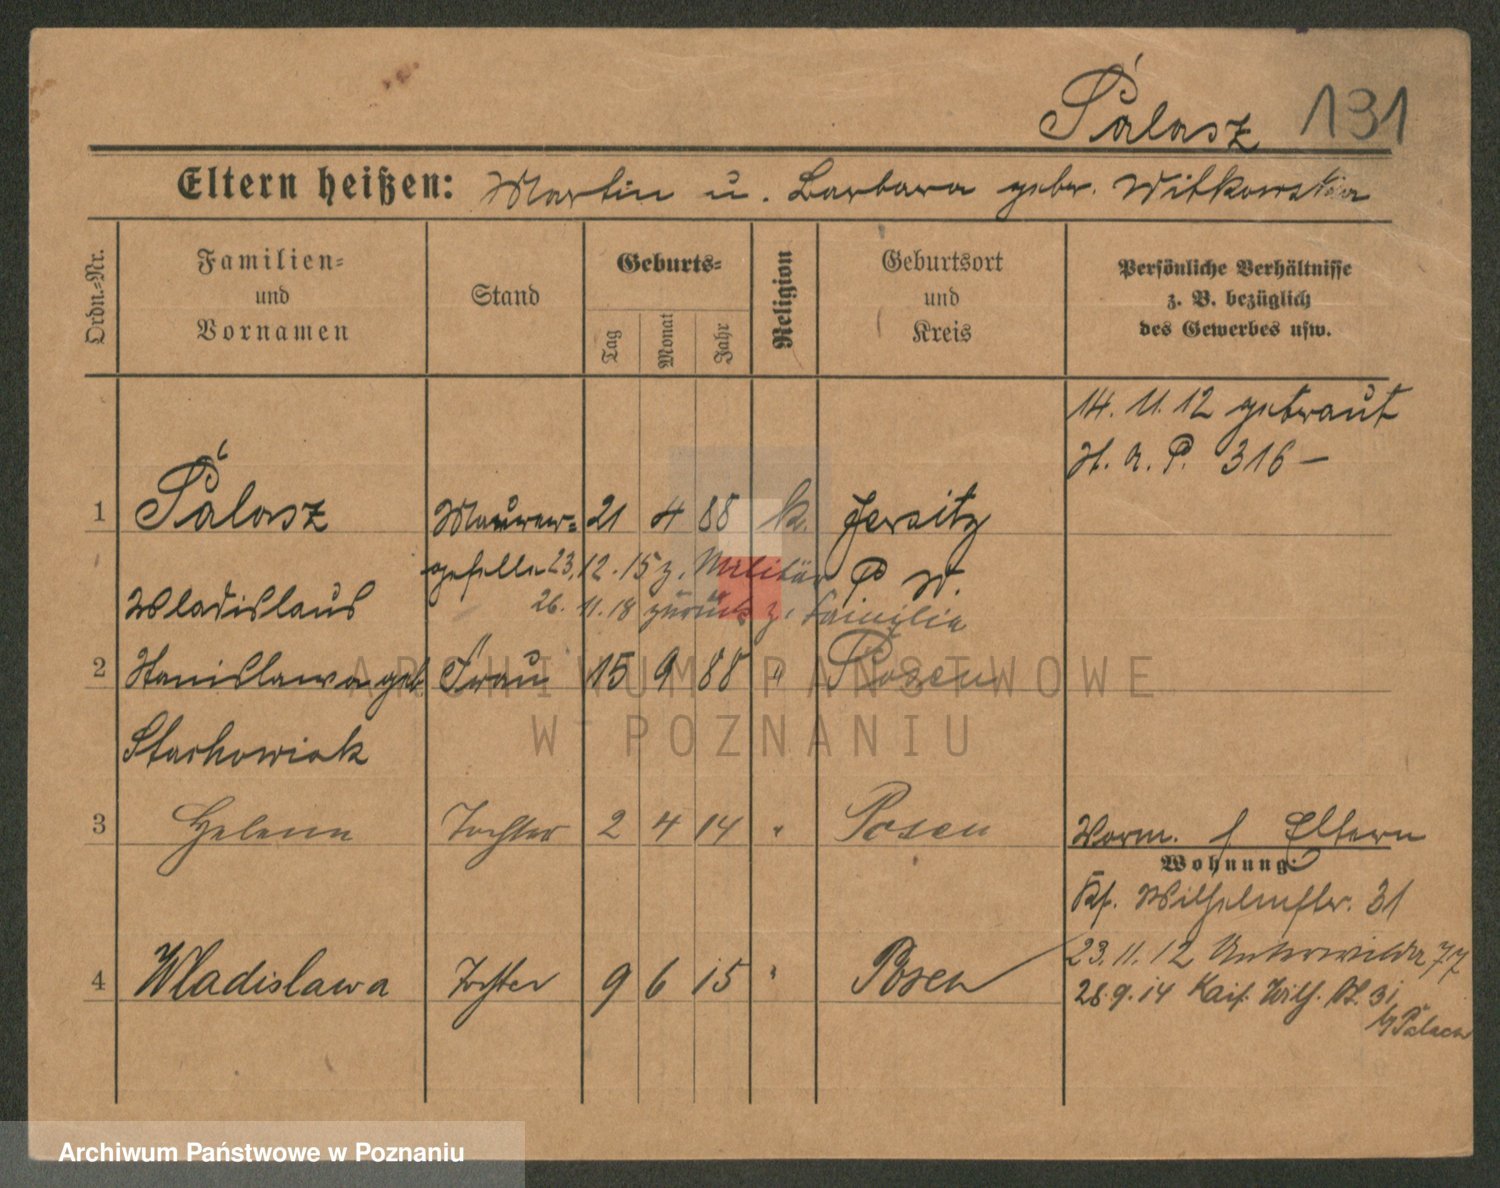 Pálasz 131
Eltern heißen: Martin u. Barbara gebr. Witkowska
Ordn.-Nr.
Familien-
und
Vornamen
Stand
Geburts-
Tag
Monat
Jahr
Religion
Geburtsort
und
Kreis
Persönliche Verhältnisse
z. B. bezüglich
des Gewerbes usw.
14. 11. 12 getraut
H. A. P. 316 –
1 Pálasz Maurer- 21 4 88 k. Jersitz
geselle 23.12.15 z. Militär P. W.
Wladislaus 26. 11. 18 zurück z. Familie
2 Stanislawa geb. Frau 15 9 88 " Posen
ARCHIWUM PAŃSTWOWE
W POZNANIU
Stachowiak
3 Helene Tochter 2 4 14 " Posen
Vorm. Eltern
Wohnung:
Wilhelmstr. 31
4 Wladislawa Tochter 9 6 15 " Posen
23. 11. 12 Unterwilda 77
28. 9. 14 Kais. Wilh. 31
Archiwum Państwowe w Poznaniu